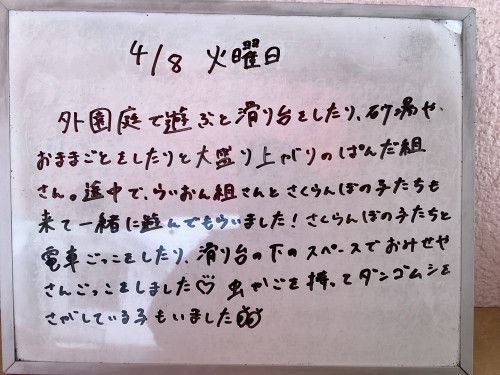 4/8 火曜日
外園庭で遊ぶと滑り台をしたり、砂場や、
おままごとをしたりと大盛り上がりのぱんだ組
さん。途中で、らいおん組さんとさくらんぼの子たちも
来て一緒に遊んでもらいました!さくらんぼの子たちと
電車ごっこをしたり、滑り台の下のスペースでおみせや
さんごっこをしました♡ 虫かごを持ってダンゴムシを
さがしている子もいました